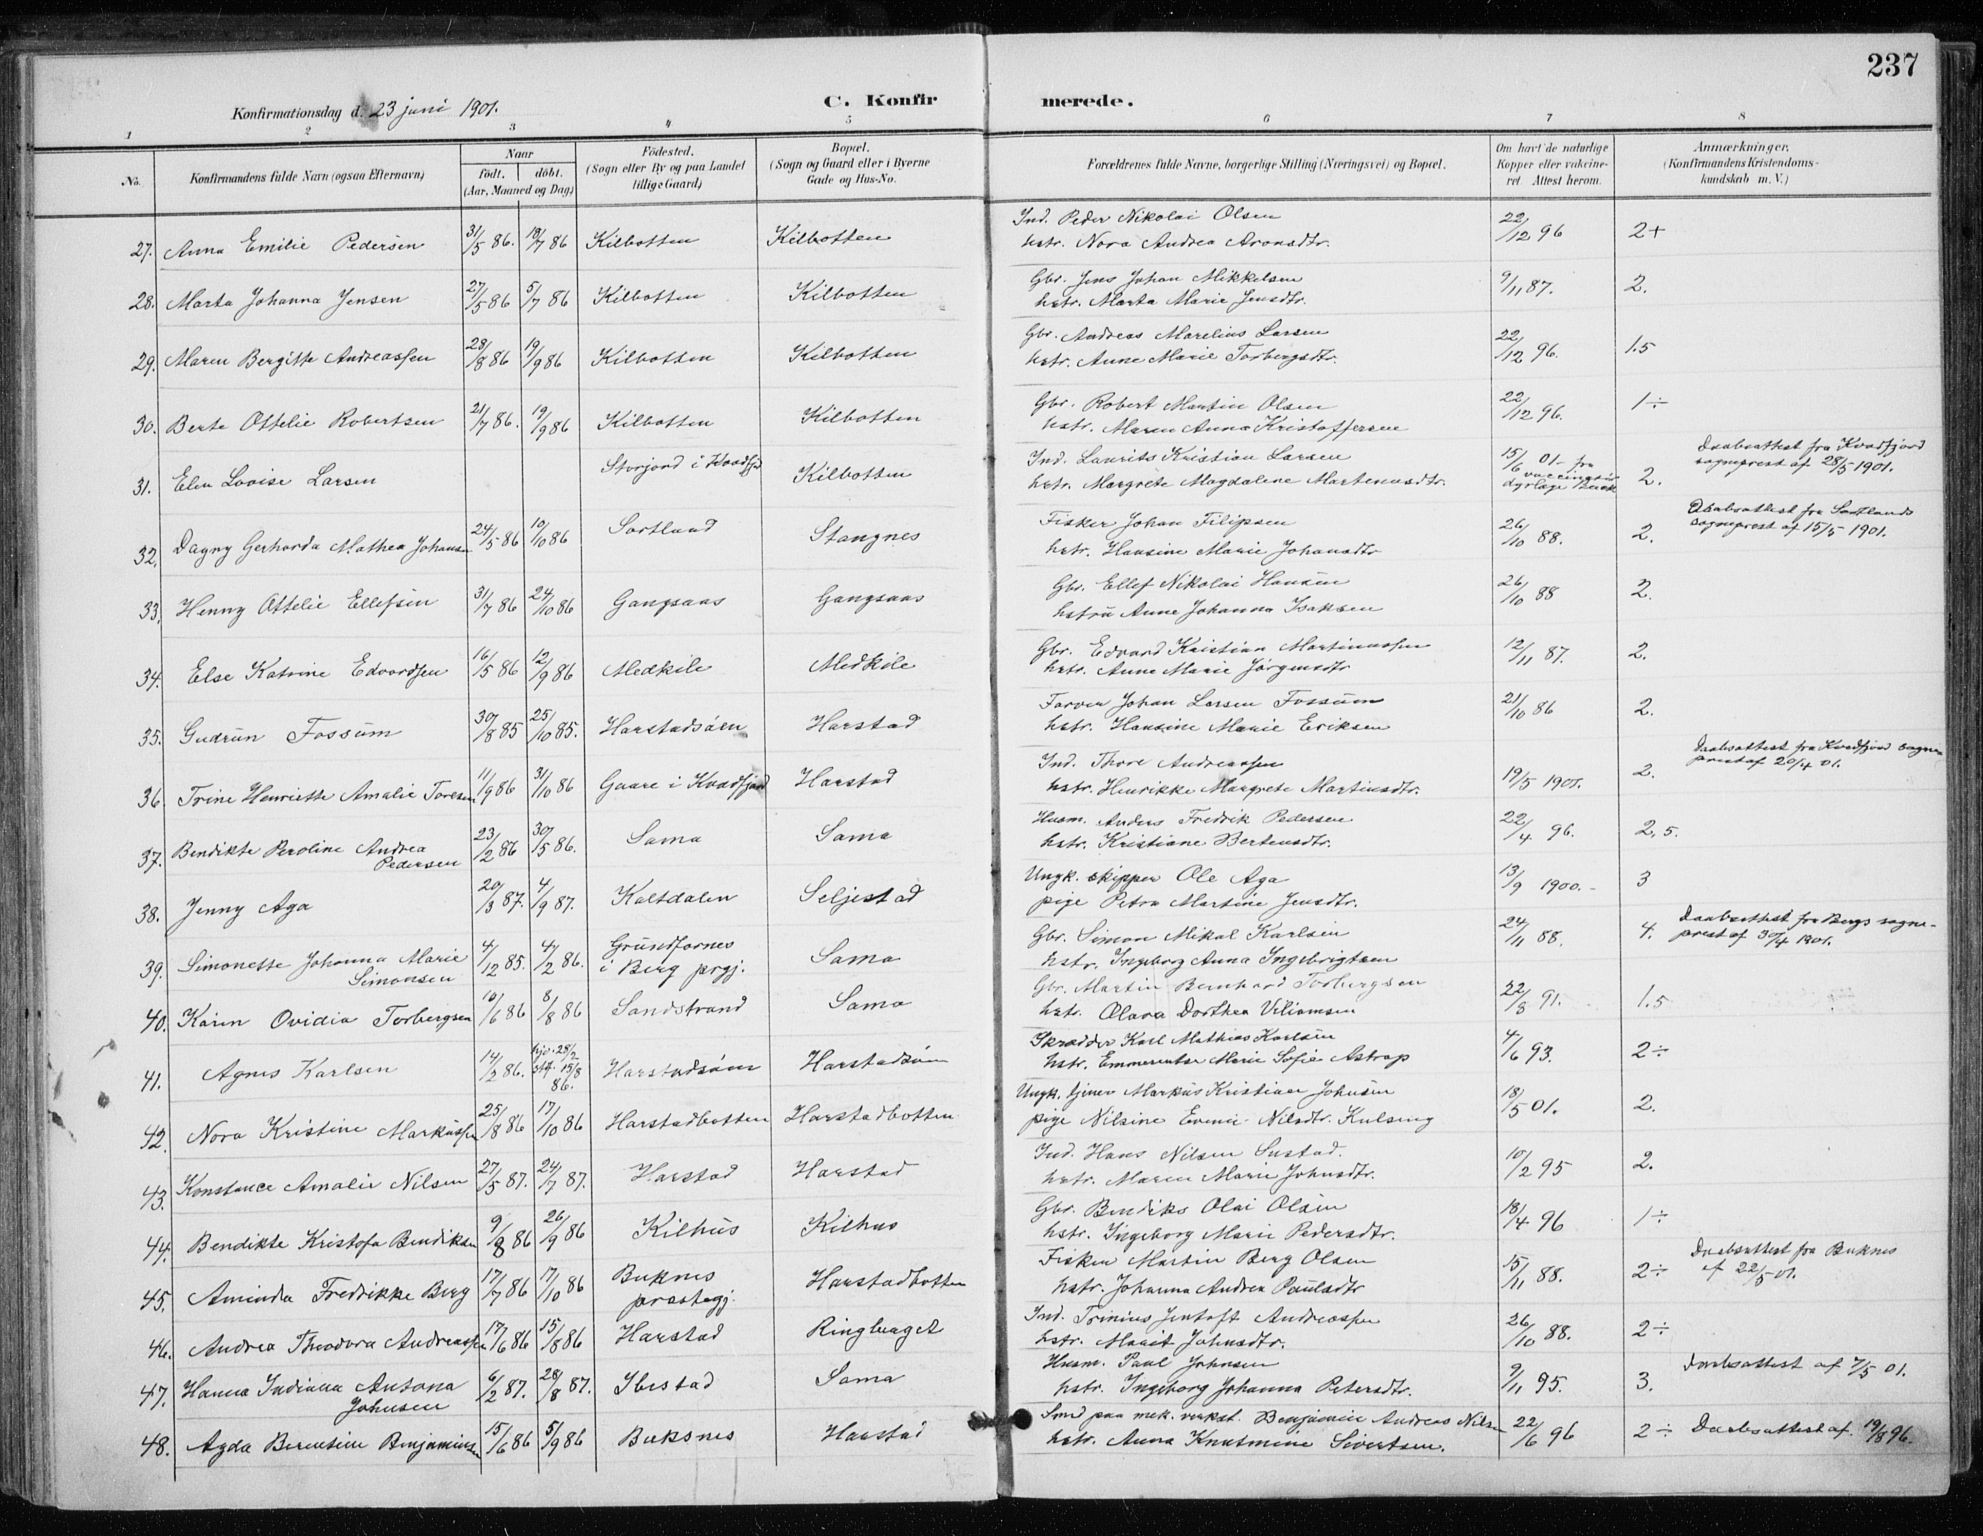 237
Konfirmationsdag d. 23 juni 1901.
C. Konfirmerede.
1 2 3 4 5 6 7 8
No. Konfirmandens fulde Navn (ogsaa Efternavn) Naar födt. döbt. (Aar, Maaned og Dag) Födested. (Sogn eller By og paa Landet tillige Gaard) Bopæl. (Sogn og Gaard eller i Byerne Gade og Hus-No. Forældrenes fulde Navne, borgerlige Stilling (Næringsvei) og Bopæl. Om havt de naturlige Kopper eller vakcineret. Attest herom. Anmærkninger. (Konfirmandens Kristendomskundskab m. V.)
27. Anna Emilie Pedersen 31/5 86. 18/7 86 Kilbotten Kilbotten Ind. Peder Nikolai Olsen 22/12 96 2+
hstr. Nora Andrea Aronsdtr.
28. Marta Johanna Jensen 27/5 86 5/7 86 Kilbotten Kilbotten Gbr. Jens Johan Mikkelsen 9/11 87. 2.
hstr. Marta Marie Jensdtr.
29. Maren Bergitte Andreassen 28/8 86 19/9 86 Kilbotten Kilbotten Gbr. Andreas Marelius Larsen 22/12 96. 1.5
hstr. Anne Marie Torbergsdtr.
30. Berte Ottelie Robertsen 21/7 86. 19/9 86 Kilbotten Kilbotten Gbr. Robert Martin Olsen 22/12 96. 1÷
hstr. Maren Anna Kristoffersen
31. Elen Lovise Larsen Storjord i Kvadfjd Kilbotten Ind. Laurits Kristian Larsen 15/6 01 - fra 2. Daabsattest fra Kvadfjord
hstr. Margrete Magdalene Martenusdtr. sogneprest af 28/5 1901.
32. Dagny Gerharda Mathea Johansen 24/5 86 10/10 86 Sortland Stangnes Fisker Johan Filipsen 26/10 88. 2. Daabsattest fra Sortlands
hstr. Hansine Marie Johansdtr sogneprest af 15/5 1901.
33. Henny Ottelie Ellefsen 31/7 86 24/10 86 Gangsaas Gangsaas Gbr. Ellef Nikolai Hansen 26/10 88 2.
hstru Anne Johanna Isaksen
34. Else Katrine Edvardsen 16/5 86 12/9 86 Medkile Medkile Gbr. Edvard Kristian Martinussen 12/11 87. 2.
hstr. Anne Marie Jörgensdtr
35. Gudrun Fossum 30/8 85 25/10 85. Harstadsöen Harstad Farver Johan Larsen Fossum 21/10 86 2.
hstr. Hansine Marie Eriksen
36. Trine Henriette Amalie Toresen 11/9 86 31/10 86 Gaare i Kvadfjord Harstad Ind. Thore Andreassen 19/5 1901. 2. Daabsattest fra Kvadfjord sogne-
hstr. Henrikke Margrete Martinsdtr. prest af 20/4 01.
37. Bendikte Peroline Andrea 23/2 86 30/5 86. Sama Sama Husm. Anders Fredrik Pedersen 22/4 96. 2,5.
Pedersen hstr. Kristiane Bertensdtr.
38. Jenny Aga 20/3 87. 4/9 87. Kaltdalen Seljestad Ungk. skipper Ole Aga 13/9 1900. - 3
pige Petra Martine Jensdtr.
39. Simonette Johanna Marie 4/12 85. 4/2 86. Grundfornes Sama Gbr. Simon Mikal Karlsen 24/11 88. 4. Daabsattest fra Bergs sogne-
Simonsen i Berg prgj. hstr. Ingeborg Anna Ingebrigtsen prest af 30/4 1901.
40. Karen Ovidia Torbergsen 10/6 86 8/8 86 Sandstrand Sama Gbr. Martin Bernhard Torbergsen 22/8 91. 1.5
hstr. Olava Dorthea Viliamsen
41. Agnes Karlsen 14/2 86. hjd. 28/2 stf. 15/8 86. Harstadsöen Harstadsöen Skrædder Karl Mathias Karlsen 4/6 93. 2÷
hstr. Emmerentse Marie Sofie Astrup
42. Nora Kristine Markussen 25/8 86 17/10 86 Harstadbotten Harstadbotten Ungk. tjener Markus Kristian Johnsen 18/5 01. 2.
pige Nilsine Nilsdtr. Kulseng
43. Konstance Amalie Nilsen 27/5 87. 24/7 87. Harstad Harstad Ind. Hans Nilsen Sustad. 10/2 95 2.
hstr. Maren Marie Johnsdtr.
44. Bendikte Kristofa Bendiksen 9/8 86 26/9 86 Kilhus Kilhus Gbr. Bendiks Olai Olsen 18/4 96 1÷
hstr. Ingeborg Marie Pedersdtr.
45. Aminda Fredrikke Berg 17/7 86 17/10 86 Buknes Harstadbotten Fisker Martin Berg Olsen 15/11 88. 2÷ Daabsattest fra Buknes
prestegj. hstr. Johanna Andrea Paulsdtr af 22/5 01.
46. Andrea Theodora Andreassen 17/6 86 15/8 86 Harstad Ringberget Ind. Trinius Jentoft Andreassen 26/10 88. 2÷
hstr. Marit Johnsdtr.
47. Hanna Indiana Antona 6/2 87. 28/8 87. Ibestad Sama Husm. Paul Johnsen 9/11 95. 3. Daabsattest af 7/5 01.
Johnsen hstr. Ingeborg Johanna Petersdtr.
48. Agda Berentine Benjaminsen 15/6 86 5/9 86 Buksnes Harstad Smd paa mek. verkst. Benjamin Andreas Nilsen 22/6 96 2÷ Daabsattest af 19/8 96.
hstr. Anna Knutmine Sivertsen.